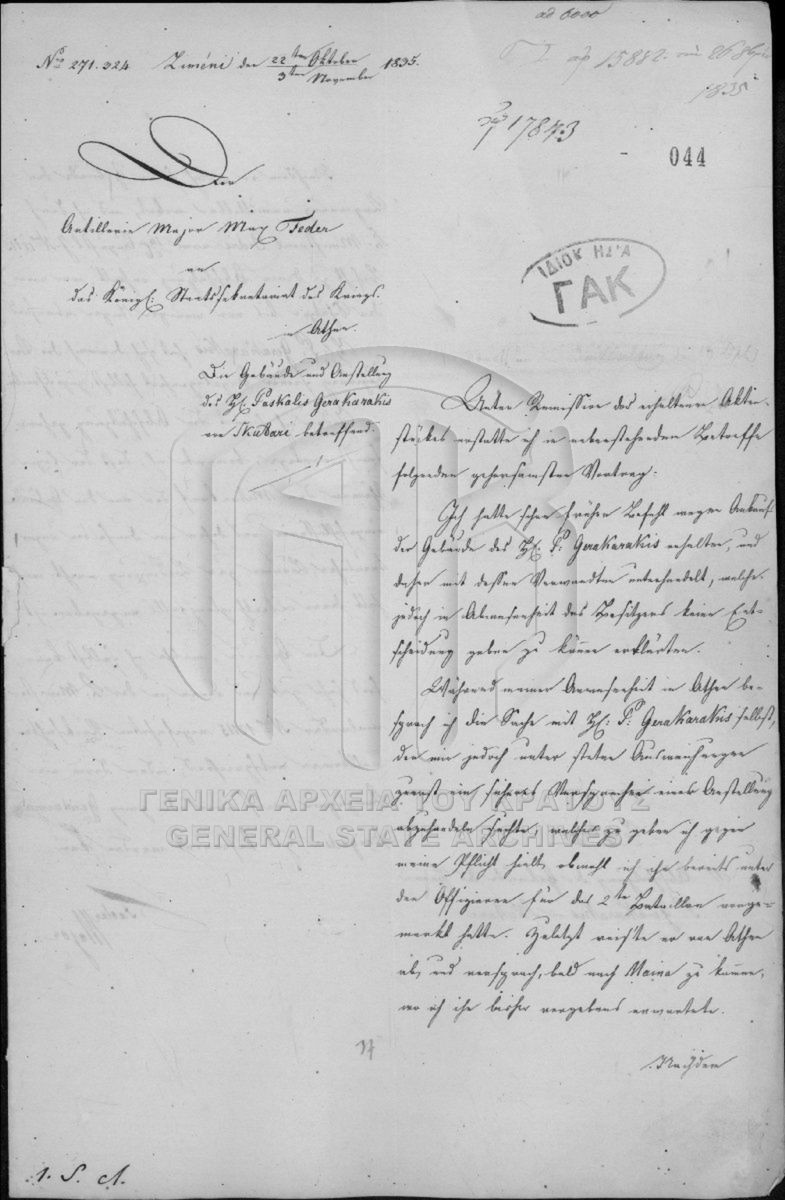 ad 6000
No 271.324. Liméni den 22ten Oktober / 3ten November 1835.
15882 1835
17843
044
Der
Artillerie Major Max Feder
an
das Königl: Staatssekretariat des Kriegs.
in Athen.
Die Gebäude und Anstellung
des H: Paskalis Gerakarakis
von Skutari betreffend.
ΙΔΙΟΚ
ΓΑΚ
Unter Remission des erhaltenen Akten-
stückes erstatte ich in nebenstehendem Betreffe
folgenden gehorsamsten Vortrag:
Ich hatte schon früher Befehl wegen Ankauf
der Gebäude des H: P: Gerakarakis erhalten, und
daher mit dessen Verwandten unterhandelt, welche
jedoch in Abwesenheit des Besitzers keine Ent-
scheidung geben zu können erklärten.
Während meiner Anwesenheit in Athen be-
sprach ich die Sache mit H: P: Gerakarakis selbst,
der mir jedoch unter steten
zuerst ein sicheres Versprechen einer Anstellung
abzuhandeln suchte, welches zu geben ich gegen
meine Pflicht hielt, obwohl ich ihn bereits unter
den Offizieren für das 2te Bataillon vorge-
merkt hatte. Zuletzt reiste er von Athen
ab, und versprach, bald nach Maina zu kommen,
wo ich ihn bisher vergebens erwartete.
Nachdem
ΓΕΝΙΚΑ ΑΡΧΕΙΑ ΤΟΥ ΚΡΑΤΟΥΣ
GENERAL STATE ARCHIVES
1. S. A.